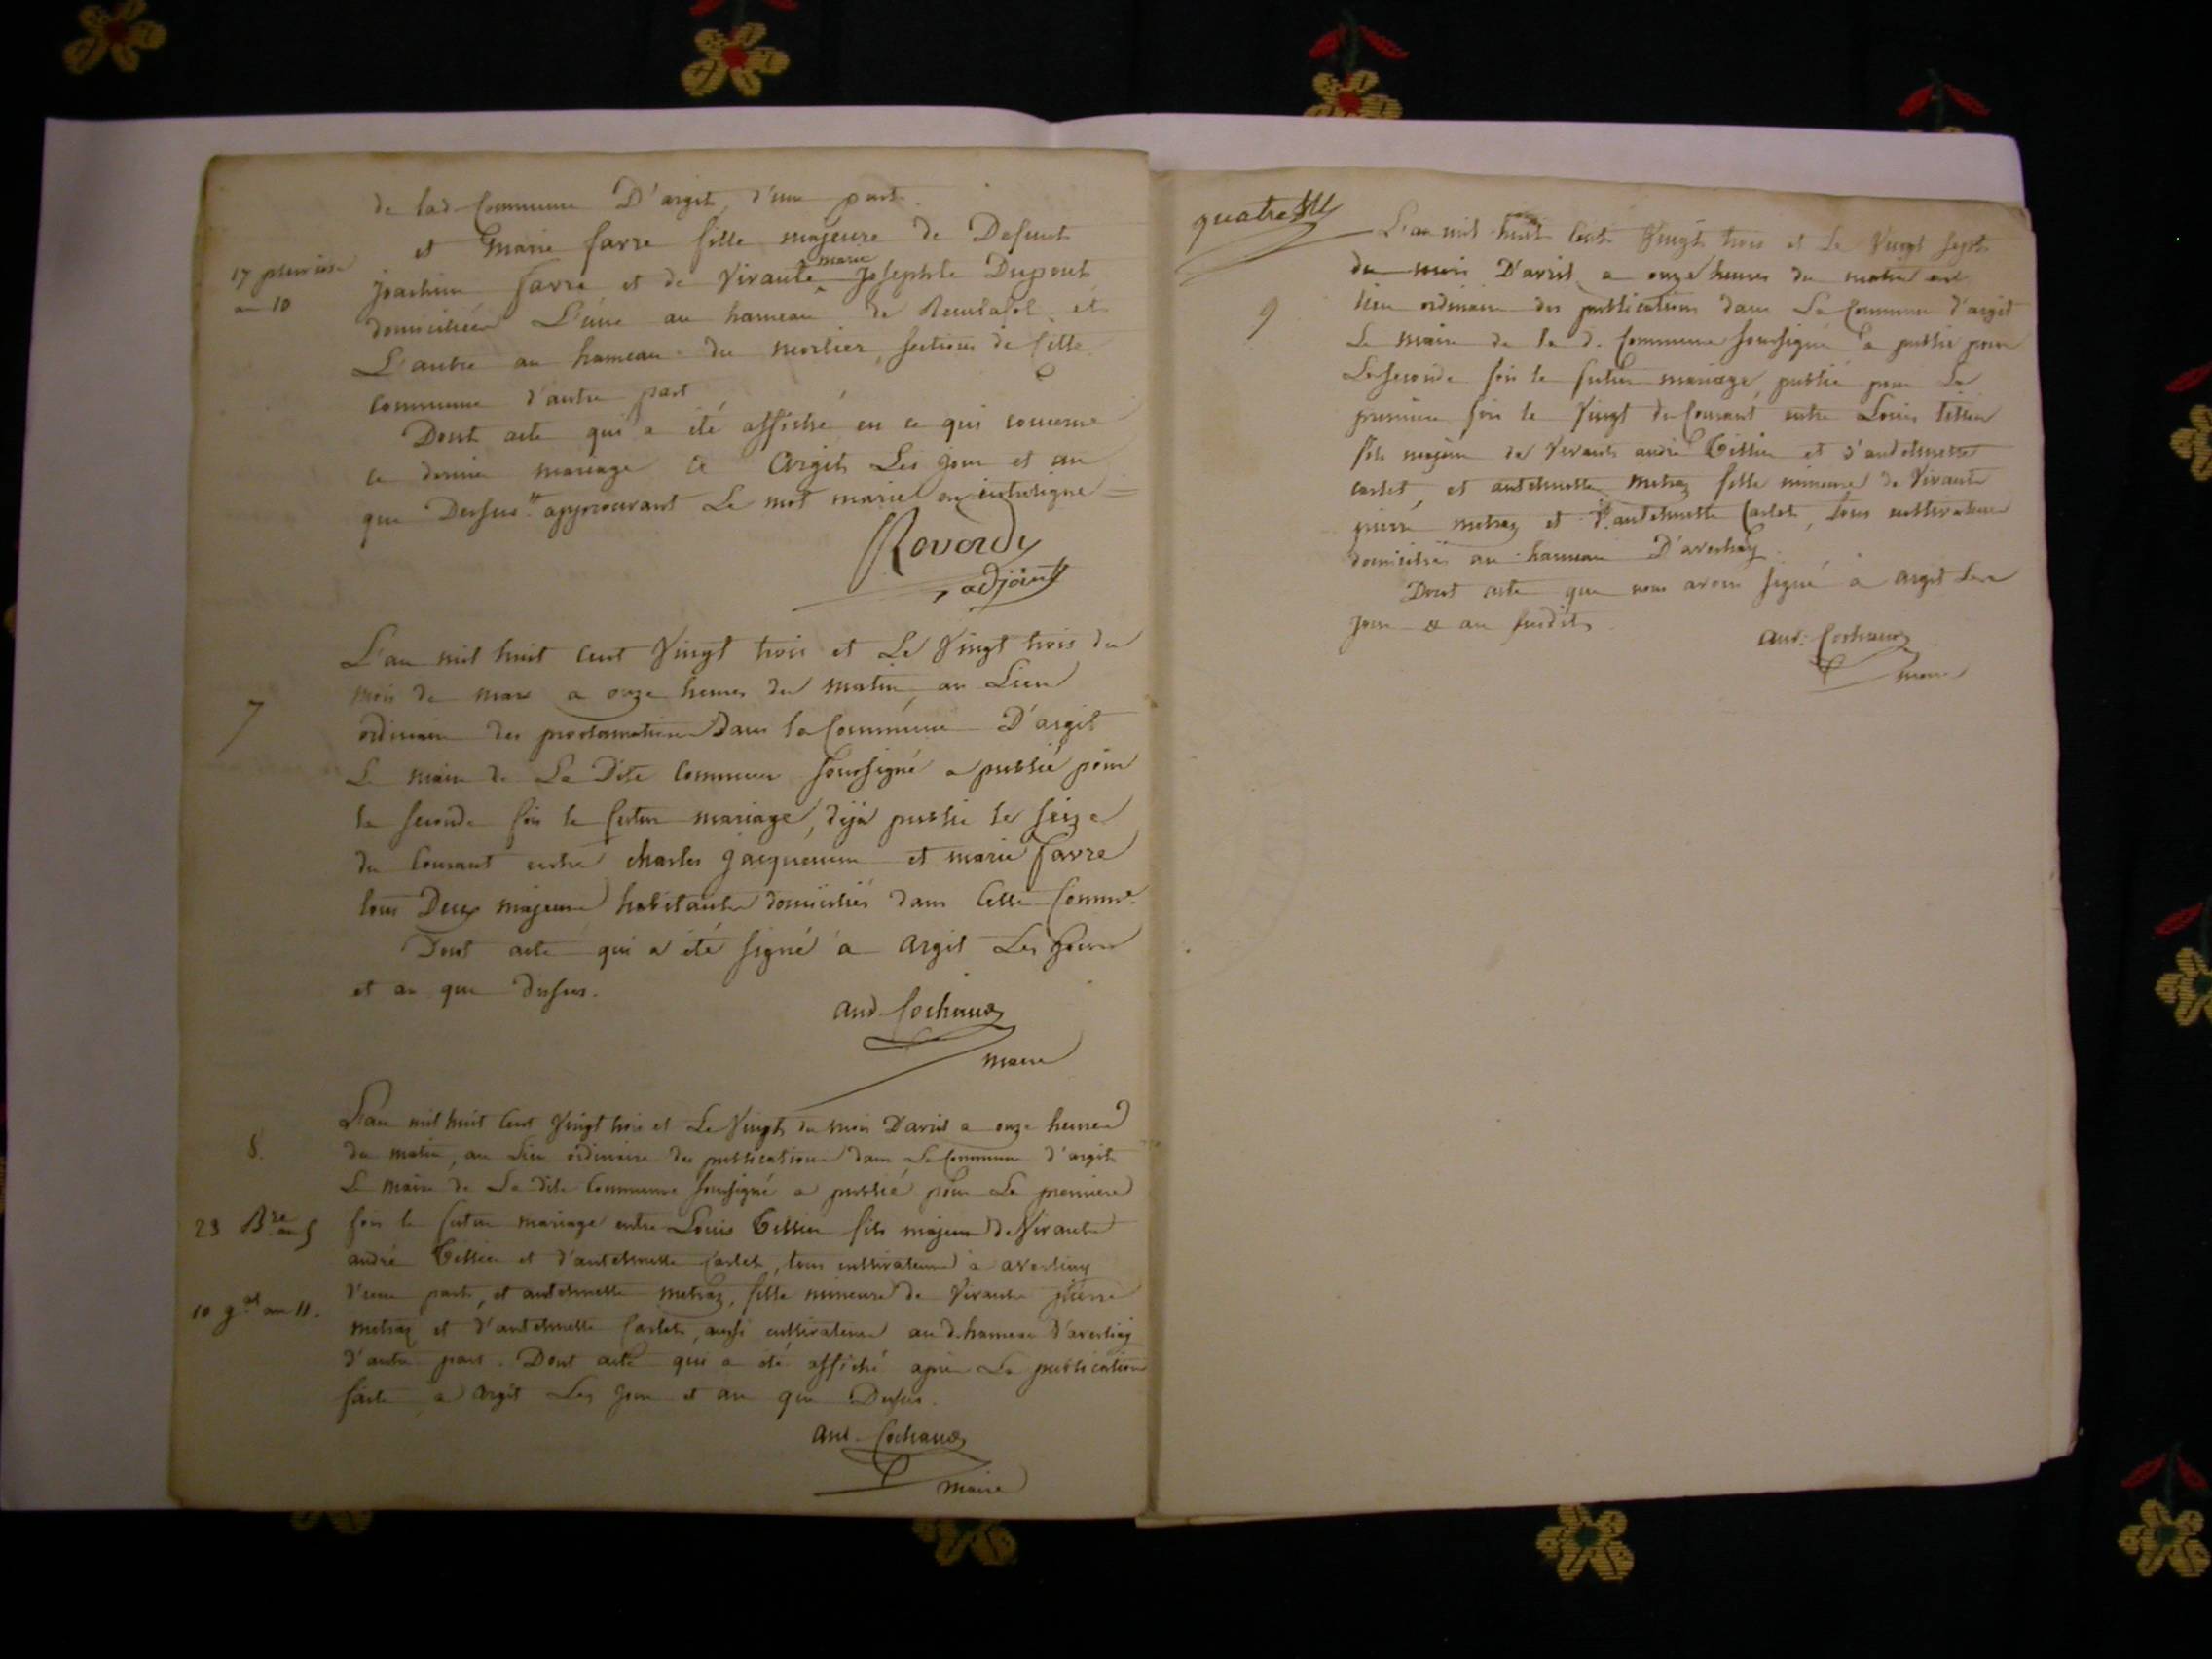 de lad. Commune D'argit, d'une part.
et Marie favre fille majeure de Defunt
17 pluviose
an 10
joachim favre et de Vivante marie josephte Dupont
domiciliées L'une au hameau de et
L'autre au hameau du mortier, sections de Cette
Commune d'autre part
Dont acte qui a été affiché en ce qui concerne
ce dernier mariage à Argit Les jour et an
que Dessus approuvant Le mot marie en interligne
Revordy
adjoint
7
L'an mil huit cent Vingt trois et Le Vingt trois du
mois de mars a onze heures du matin, au Lieu
ordinaire des proclamations Dans la Commune D'argit
Le maire de La Dite Commune Soussigné a publié pour
la seconde fois le futur mariage, déja publié le seize
du Courant entre charles jacquemin et marie favre
tous Deux majeurs habitants domiciliés dans Cette Commne.
Dont acte qui a été signé a Argit Les jour
et an que dessus.
And Cochaux
maire
8.
L'an mil huit Cent Vingt trois et Le Vingt du mois D'avril a onze heures
du matin, au Lieu ordinaire des publications dans La Commune d'argit
Le maire de La dite Commune soussigné a publié pour La premiere
23 Bre an 5
fois le futur mariage entre Louis Tissier fils majeur de Vivants
andré Tissier et d'anthelmette Carlet, tous cultivateurs à
10 gal an 11.
d'une part, et anthelmette metraz, fille mineure de Vivants pierre
metraz et d'anthelmette Carlet, aussi cultivateurs aud. hameau
d'autre part. Dont acte qui a été affiché après La publication
faite a Argit Les jour et an que Dessus.
And. Cochaux
maire
quatre
L'an mil huit Cent Vingt trois et Le Vingt sept
du mois D'avril a onze heures du matin au
9
lieu ordinaire des publications dans La Commune d'argit
Le maire de la d. Commune soussigné a publié pour
La seconde fois le futur mariage publié pour La
premiere fois le Vingt du Courant entre Louis tissier
fils majeur de Vivants andré Tissier et d'anthelmette
carlet, et anthelmette metraz fille mineure de Vivants
pierre metraz et d'anthelmette Carlet, tous cultivateurs
domiciliés au hameau
Dont acte que nous avons signé à Argit Les
jour & an susdits.
And. Cochaux
maire